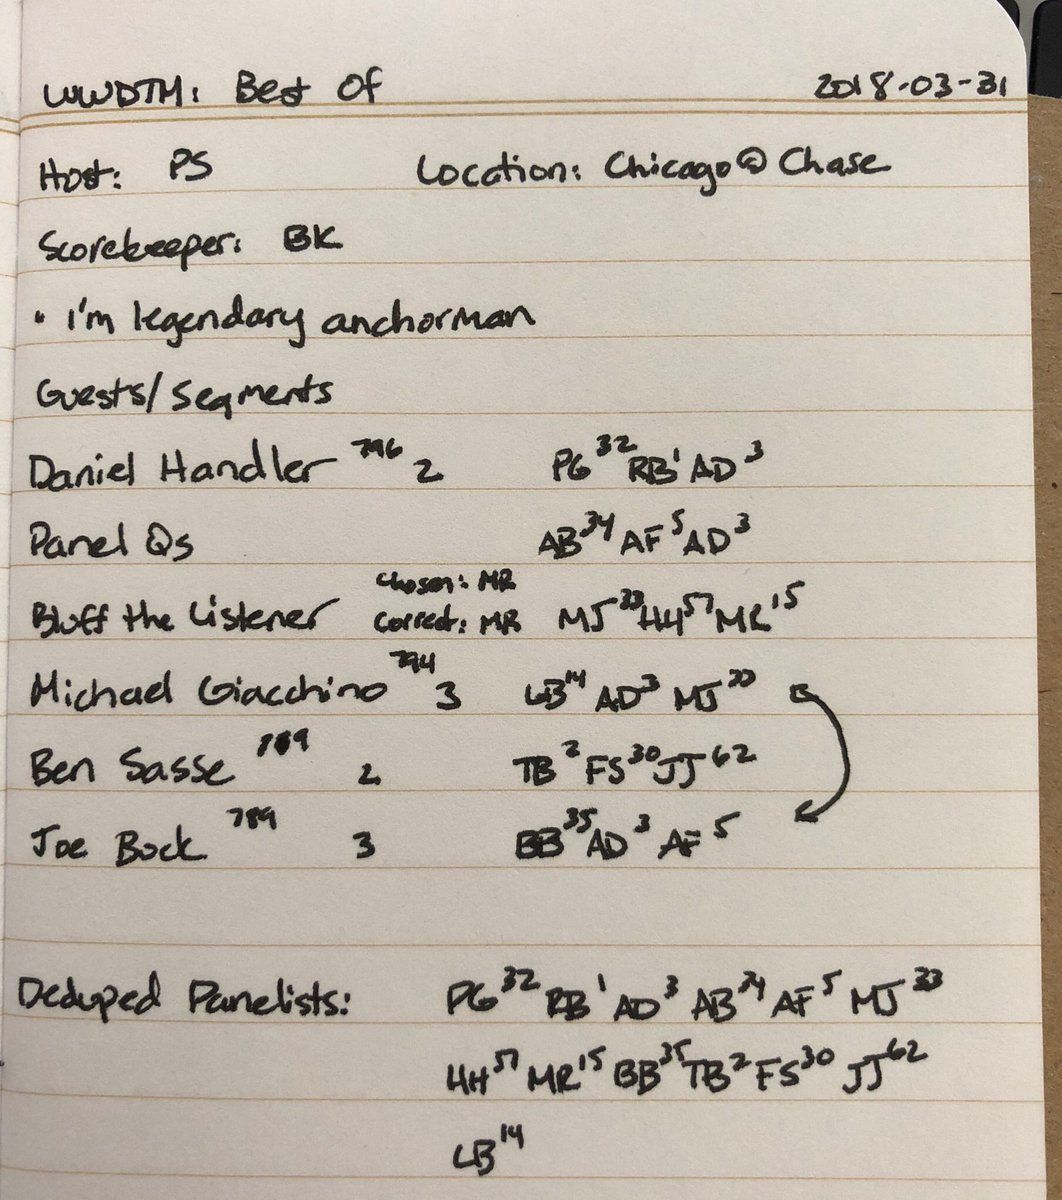 WWDTM: Best Of 2018-03-31
Host: PS Location: Chicago @ Chase
Scorekeeper: BK
• I'm legendary anchorman
Guests/Segments
Daniel Handler 796 2 PG 32 RB 1 AD 3
Panel Qs AB 34 AF 5 AD 3
Bluff the Listener Chosen: MR Correct: MR MJ 33 HH 57 MR 15
Michael Giacchino 794 3 LB 14 AD 3 MJ
Ben Sasse 2 TB 2 FS 30 JJ 62
Joe Buck 789 3 BB 35 AD 3 AF 5
Deduped Panelists: PG 32 RB 1 AD 3 AB 34 AF 5 MJ 33
HH 57 MR 15 BB 35 TB 2 FS 30 JJ 62
LB 14